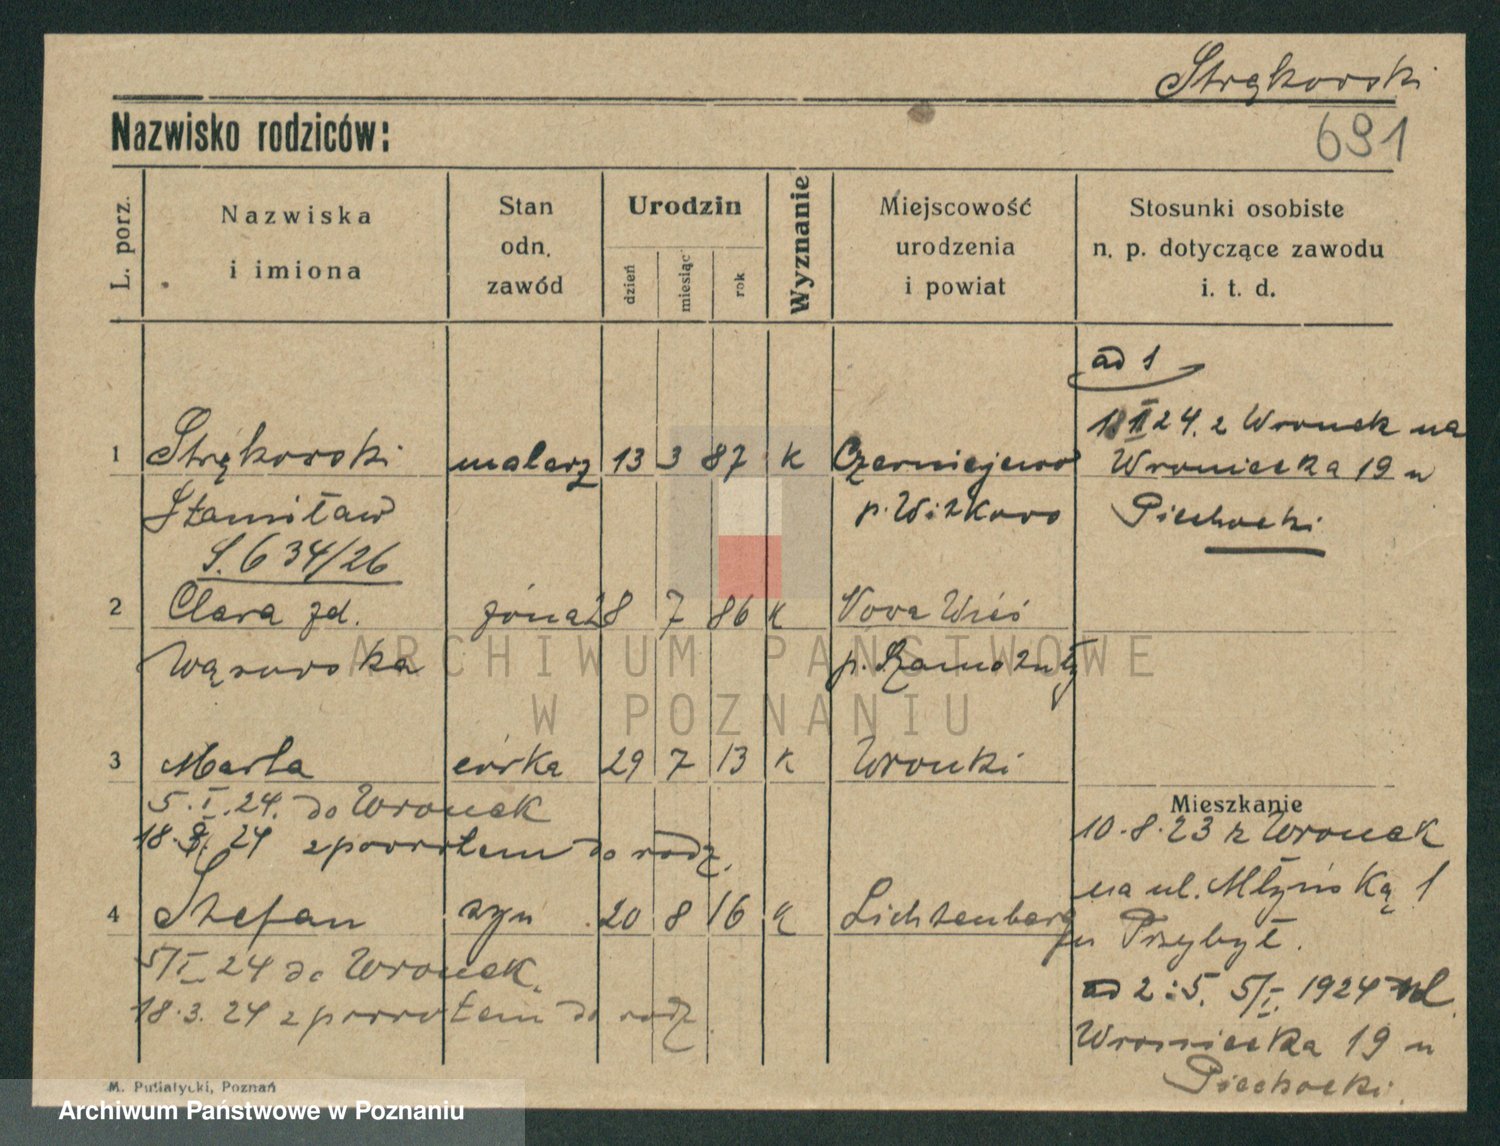 Strękowski
Nazwisko rodziców:
691
L. porz.
Nazwiska
i imiona
Stan
odn.
zawód
Urodzin
dzień
miesiąc
rok
Wyznanie
Miejscowość
urodzenia
i powiat
Stosunki osobiste
n. p. dotyczące zawodu
i. t. d.
ad 1
24. z Wronek na
Wroniecka 19 u
Piechocki
1 Strękowski malarz 13 3 87 k Czerniejewo
Stanisław p. Witkowo
S. 634/26
2 Clara zd. żona 28 7 86 k Nova Wieś
Wąsowska p. Szamotuły
3 Marta córka 29 7 13 k Wronki
5.I.24. do Wronek
18. 24 z powrotem do rodz.
4 Stefan syn 20 8 16 k Lichtenberg
5/I 24 do Wronek.
18.3.24 z powrotem do rodz.
Mieszkanie
10.8.23 z Wronek
na ul. Młyńską 1
u Przybył.
ad 2:5. 5/I. 1924 ul.
Wroniecka 19 u
Piechocki.
M. Putiatycki, Poznań
ARCHIWUM PAŃSTWOWE
W POZNANIU
Archiwum Państwowe w Poznaniu